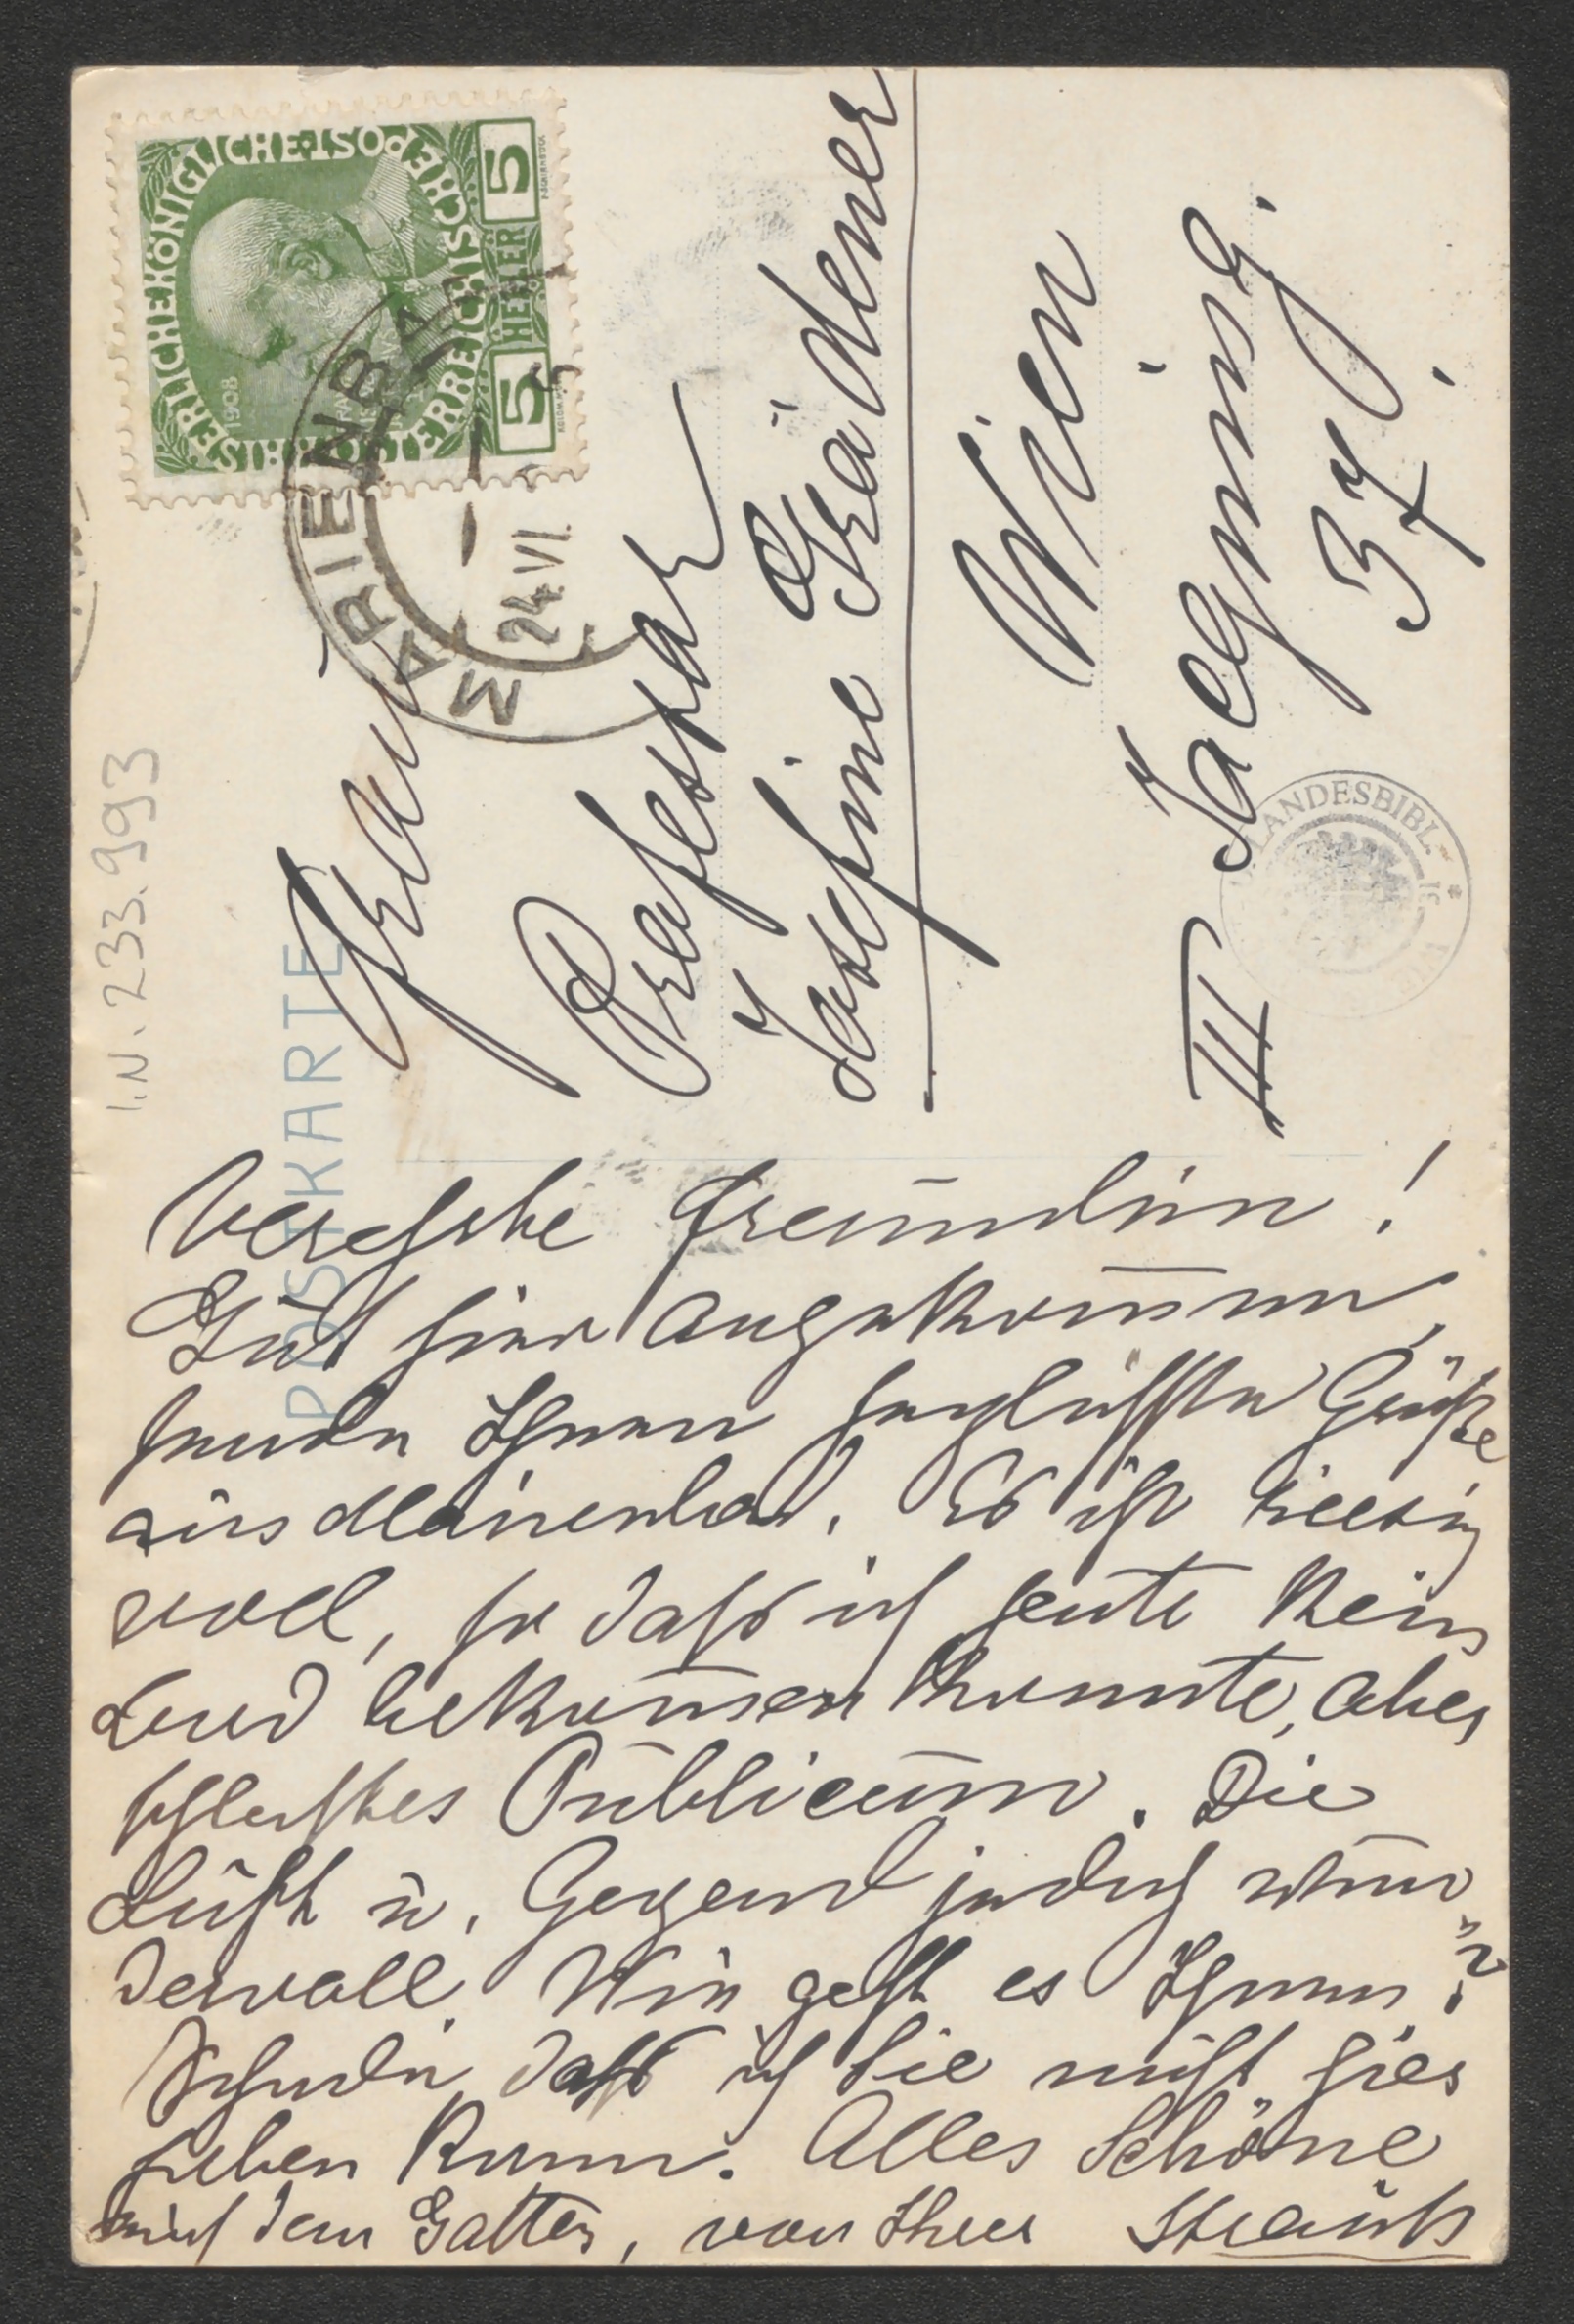 I.N. 233.993
POSTKARTE
KAISERLICHE KÖNIGLICHE POST
ÖSTERREICHISCHE
1908
5 HELLER 5
MARIENBA
24. VI.
Frau
Professor
Josefine Grädener
Wien
III Jacquing.
37.
LANDESBIBL.
Verehrte Freundin!
Gut hier angekommen,
sende Ihnen herzlichste Grüße
aus Marienbad. Es ist riesig
voll, so daß ich heute kein
Bad bekommen konnte, aber
schlechtes Publicum. Die
Luft u. Gegend jedoch wun
dervoll. Wie geht es Ihnen?
Schade, daß ich Sie nicht hier
haben kann. Alles Schöne
auch dem Gatten, von Ihrer Strauß